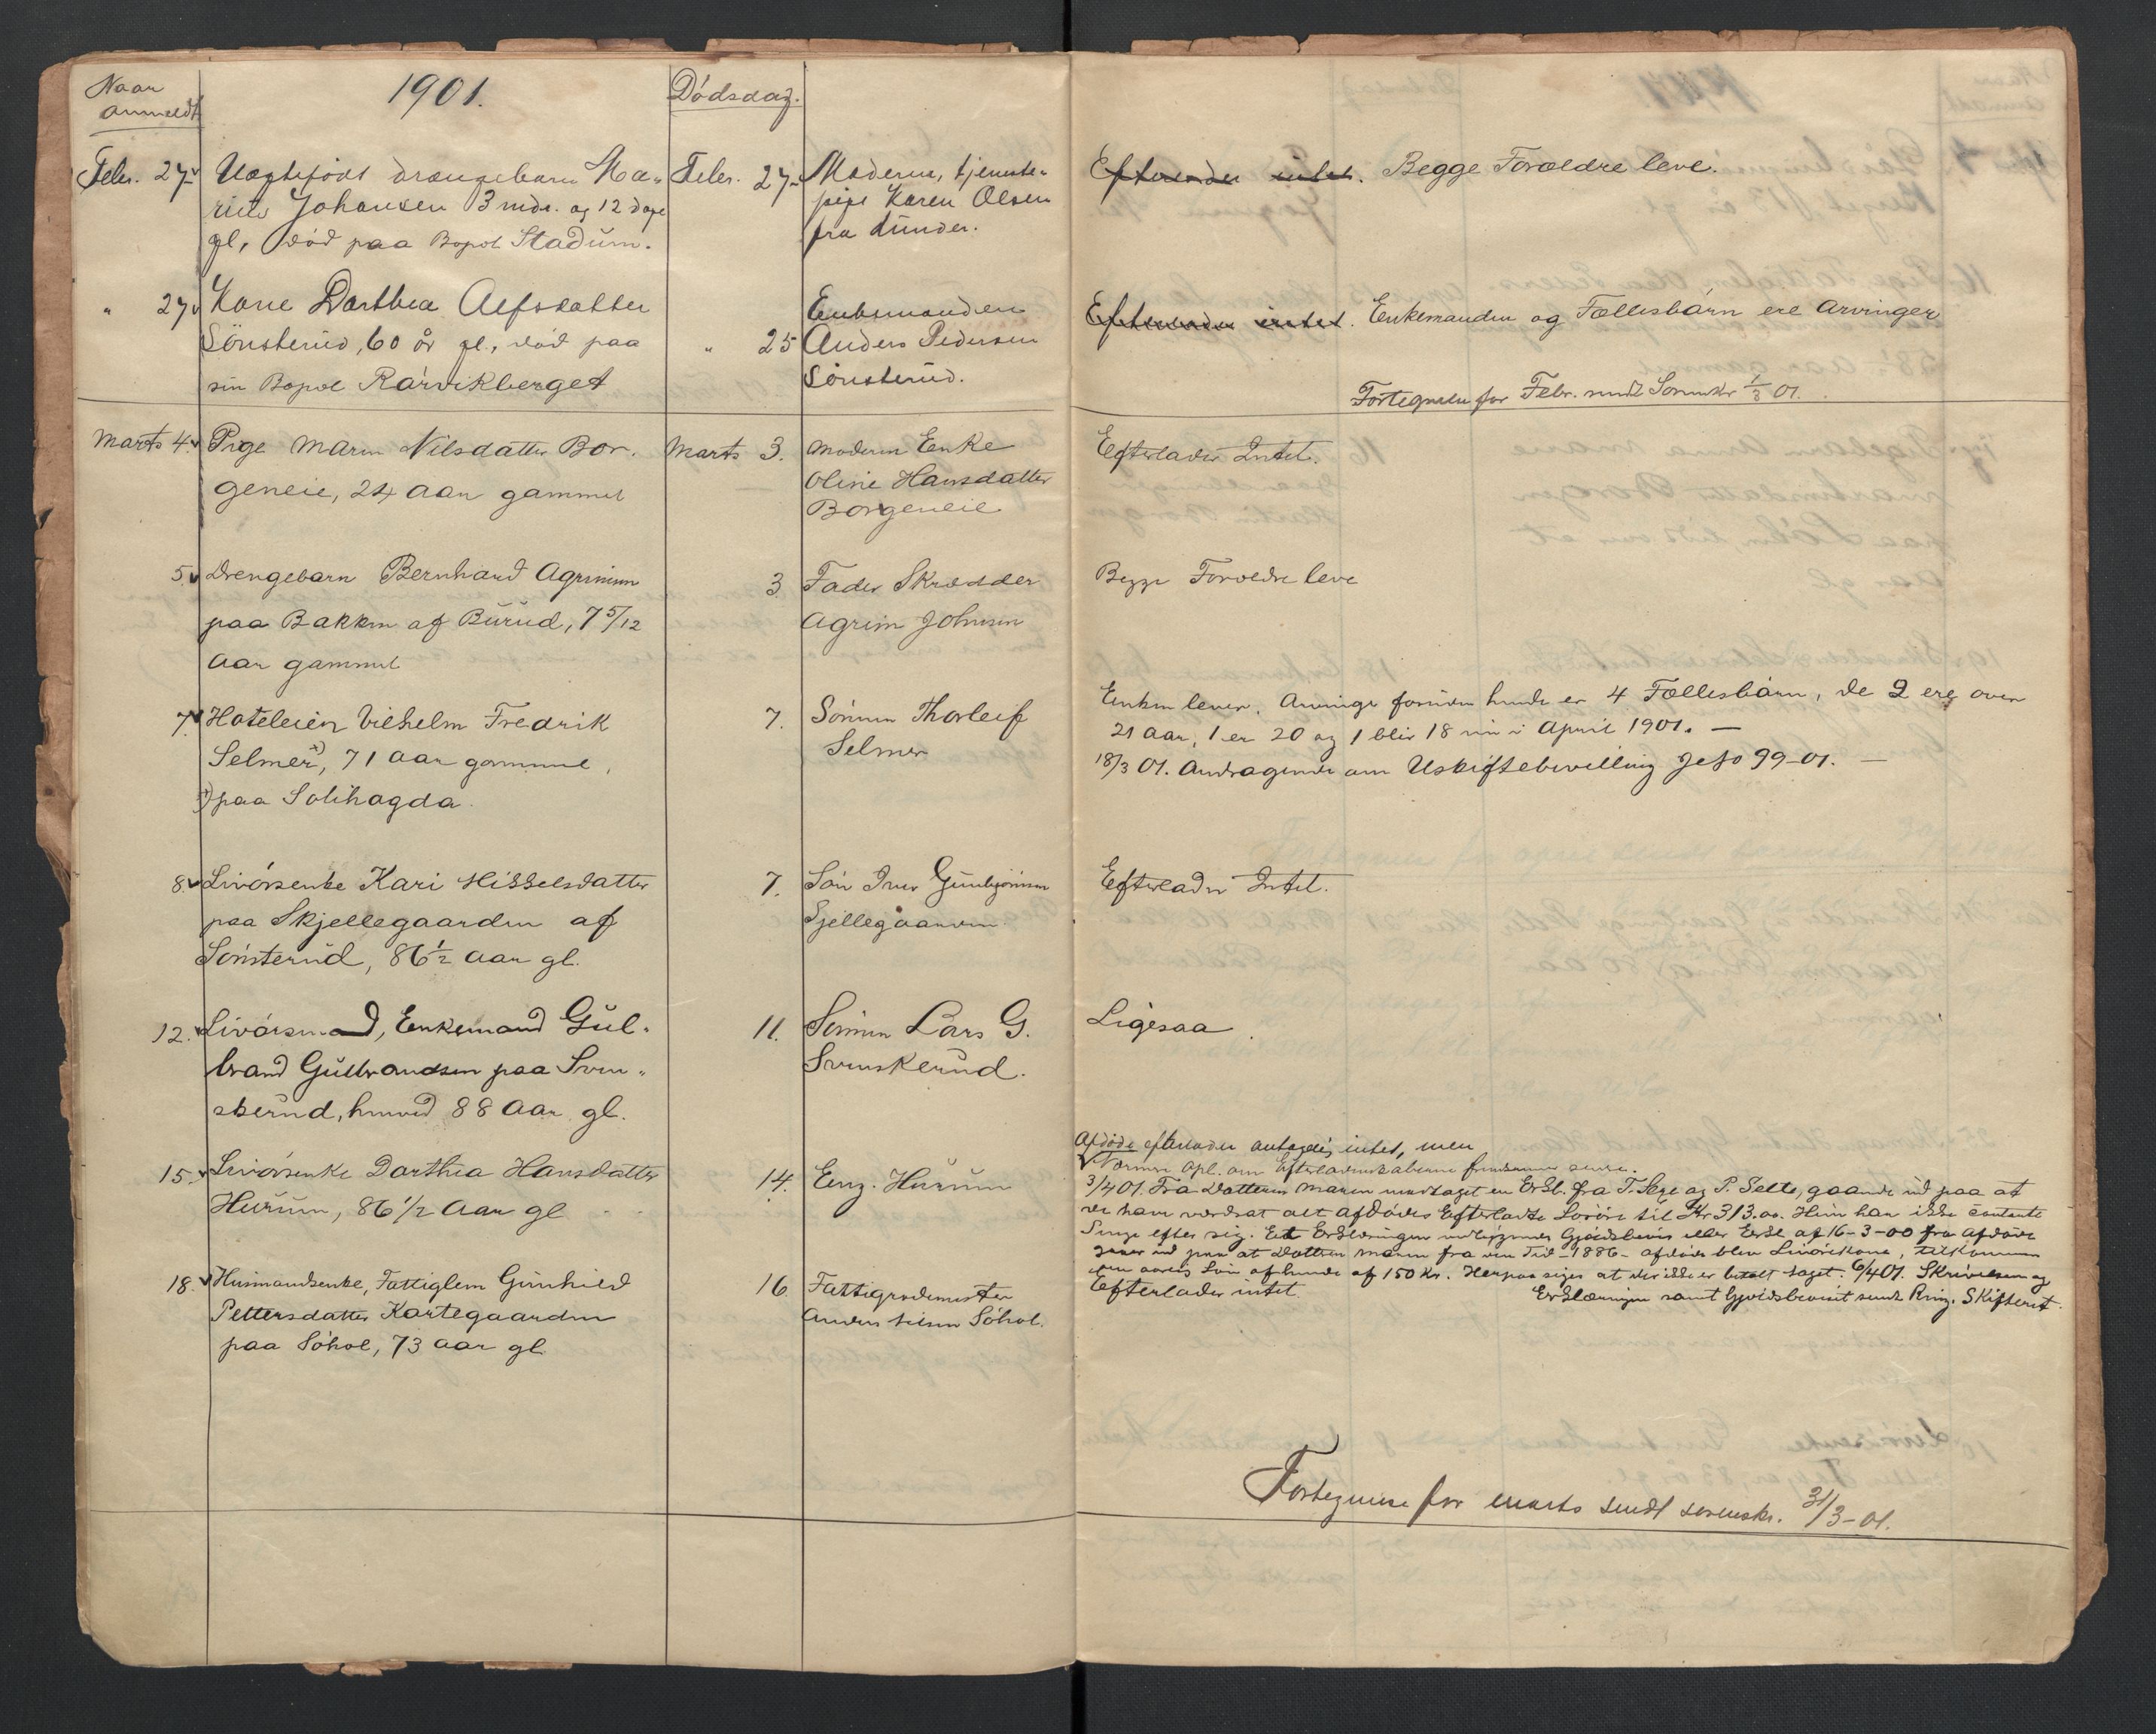 Naar
anmeldt
1901.
Dödsdag.
Febr. 27
Uægtefödt drængebarn Ma-
rius Johansen 3 mdr. og 12 dage
gl, död paa Bopæl Stadum.
Febr. 27
Moderen, tjeneste-
pige Karen Olsen
fra Lunder.
Efterlader intet. Begge Forældre leve.
" 27
Kone Dorthea Alfsdatter
Sönsterud, 60 år gl., död paa
sin Bopæl Rörvikberget
" 25
Enkemanden
Anders Pedersen
Sönsterud.
Efterlader intet. Enkemanden og Fællesbörn ere Arvinger
Fortegnelse for Febr. sendt Sorenskr 1/3 01.
Marts 4.
Pige Maren Nilsdatter Bor-
geneie, 24 Aar gammel
Marts 3.
Moderen Enke
Oline Hansdatter
Borgeneie
Efterlader Intet.
5.
Drengebarn Bernhard Agrimsen
paa Bakken af Burud, 7 5/12
Aar gammel
3
Fader Skrædder
Agrim Johnsen
Begge Forældre leve
7.
Hoteleier Vilhelm Fredrik
Selmer x), 71 Aar gammel,
x) paa Solihagda.
7.
Sönnen Thorleif
Selmer
Enken lever. Arvinge foruden hende er 4 Fællesbörn, de 2 ere over
21 Aar, 1 er 20 og 1 blir 18 nu i April 1901. —
18/3 01. Andragende om Uskiftebevilling Jeso 99-01. —
8.
Livörsenke Kari Hisselsdatter
paa Skjellegaarden af
Sönsterud, 86 1/2 Aar gl.
7.
Sön Iver Gunbjörnsen
Sjellegaarden
Efterlader Intet.
12.
Livörsmand, Enkemand Gul-
brand Gulbrandsen paa Sven-
skerud, henved 88 Aar gl.
11.
Sönnen Lars G.
Svenskerud.
Ligesaa.
15.
Livörsenke Dorthea Hansdatter
Hurum, 86 1/2 Aar gl
14.
Eng. Hurum
Afdöde efterlader antagelig intet, men
Nærmere Opl. om Efterladenskaberne fremkommer senere.
3/4 01. Fra Datteren Maren modtaget en Erkl. fra T. Sege og P. Selte, gaaende ud paa at
de have værdsat alt Afdödes Efterladte Lösöre til Kr 313.00. Hun har ikke contante
Penge efter sig. Et Erklæringen vedlagt Gjældsbevis eller Erkl. af 16-3-00 fra Afdöde
gaar ud paa at Datteren Maren fra den Tid - 1886 - afdöde blev Livörskone, tilkommer
en aarlig Lön af hende af 150 Kr. Herpaa siges at der ikke er betalt noget. 6/4 01. Skrivelsen og
Erklæringen samt Gjældsbeviset sendt Ring. Skifteret.
18.
Husmandsenke, Fattiglem Gunhild
Pettersdatter Kortegaarden
paa Söhol, 73 Aar gl
16.
Fattigrodemester
Anders Söhol.
Efterlader intet.
Fortegnelse for marts sendt sorenskr. 31/3-01.